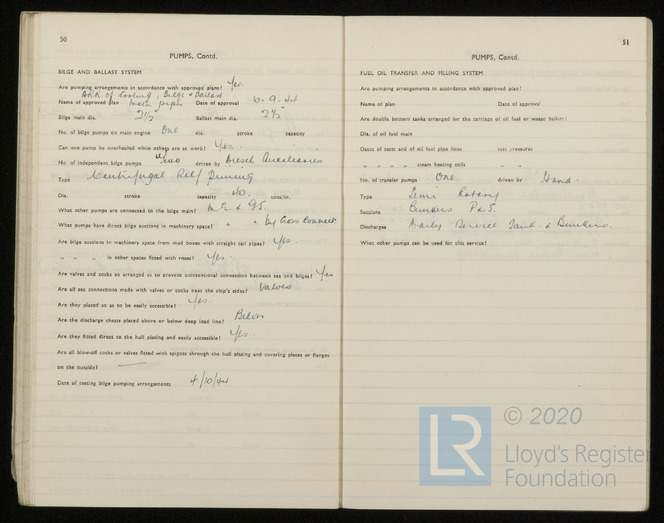 50
PUMPS, Contd.
BILGE AND BALLAST SYSTEM
Are pumping arrangements in accordance with approved plans? Yes.
Arr. of Cooling, Bilge & Ballast
Name of approved plan water pipes Date of approval 10.9.44
Bilge main dia. 2½" Ballast main dia. 2½"
No. of bilge pumps on main engine One dia. stroke capacity
Can one pump be overhauled while others are at work? Yes.
No. of independent bilge pumps Two driven by Diesel Auxiliaries
Type Centrifugal Self Priming
Dia. stroke capacity 40. tons/hr.
What other pumps are connected to the bilge main? M.E. & G.S.
What pumps have direct bilge suctions in machinery space? " " by Cross Connect.
Are bilge suctions in machinery space from mud boxes with straight tail pipes? Yes.
" " " in other spaces fitted with roses? Yes.
Are valves and cocks so arranged as to prevent unintentional connection between sea and bilges? Yes
Are all sea connections made with valves or cocks next the ship's sides? Valves
Are they placed so as to be easily accessible? Yes.
Are the discharge chests placed above or below deep load line? Below
Are they fitted direct to the hull plating and easily accessible? Yes.
Are all blow-off cocks or valves fitted with spigots through the hull plating and covering plates or flanges
on the outside?
Date of testing bilge pumping arrangements 4/10/44
51
PUMPS, Contd.
FUEL OIL TRANSFER AND FILLING SYSTEM
Are pumping arrangements in accordance with approved plan?
Name of plan Date of approval
Are double bottom tanks arranged for the carriage of oil fuel or water ballast?
Dia. of oil fuel main
Dates of tests and of oil fuel pipe lines test pressures
" " " " steam heating coils " "
No. of transfer pumps One. driven by Hand.
Type Semi Rotary
Suctions Bunkers P & S.
Discharges Daily Service Tank & Bunkers.
What other pumps can be used for this service?
LR
© 2020
Lloyd's Register
Foundation